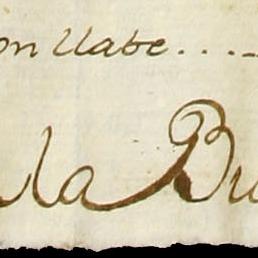 on llabe.....
la Bu